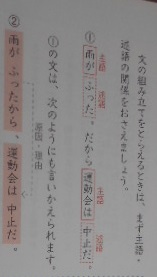 文の組み立てをとらえるときは、まず主語・
述語の関係をおさえましょう。
主語 述語 主語 述語
① 雨が ふった。だから 運動会は 中止だ。
①の文は、次のようにも言いかえられます。
原因・理由
② 雨が ふったから、運動会は 中止だ。